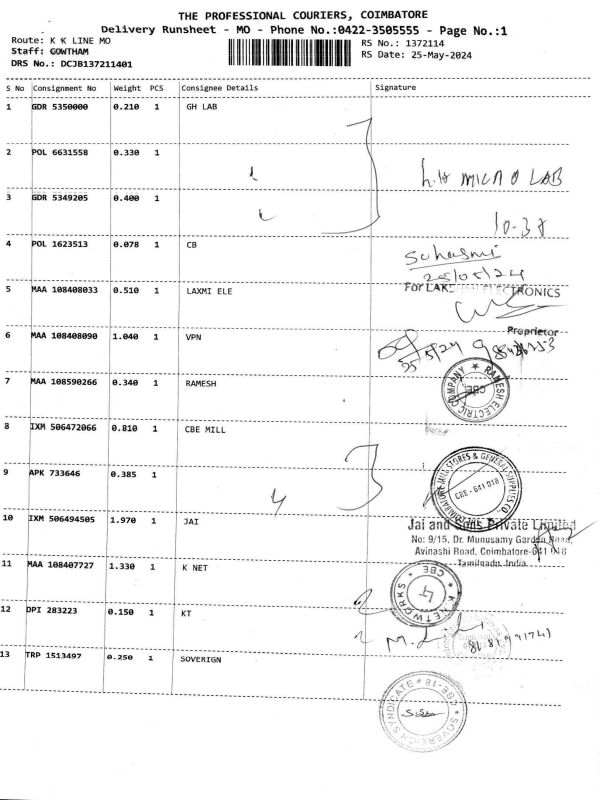 THE PROFESSIONAL COURIERS, COIMBATORE
Delivery Runsheet - MO - Phone No.:0422-3505555 - Page No.:1
Route: K K LINE MO
RS No.: 1372114
Staff: GOWTHAM
RS Date: 25-May-2024
DRS No.: DCJB137211401
S No Consignment No Weight PCS Consignee Details Signature
1 GDR 5350000 0.210 1 GH LAB
2 POL 6631558 0.330 1
MICRO LAB
3 GDR 5349205 0.400 1
10-38
4 POL 1623513 0.078 1 CB
Suhasmi
25/05/24
5 MAA 108408033 0.510 1 LAXMI ELE
For LAK ELECTRONICS
Proprietor
6 MAA 108408090 1.040 1 VPN
25/5/24
7 MAA 108590266 0.340 1 RAMESH
RAMESH ELECTRIC COMPANY ★ CBE ★
8 IXM 506472066 0.810 1 CBE MILL
9 APK 733646 0.385 1
4
COIMBATORE MILL STORES & GENERAL SUPPLIES CO. CBE - 641 018
10 IXM 506494505 1.970 1 JAI
Jai and Sons Private Limited
No: 9/15, Dr. Munusamy Garden Road,
Avinashi Road, Coimbatore-641 018
Tamilnadu, India.
11 MAA 108407727 1.330 1 K NET
K NETWORKS ★ CBE ★
12 DPI 283223 0.150 1 KT
13 TRP 1513497 0.250 1 SOVERIGN
SOVEREIGN SYNDICATE ★ CBE-18 ★